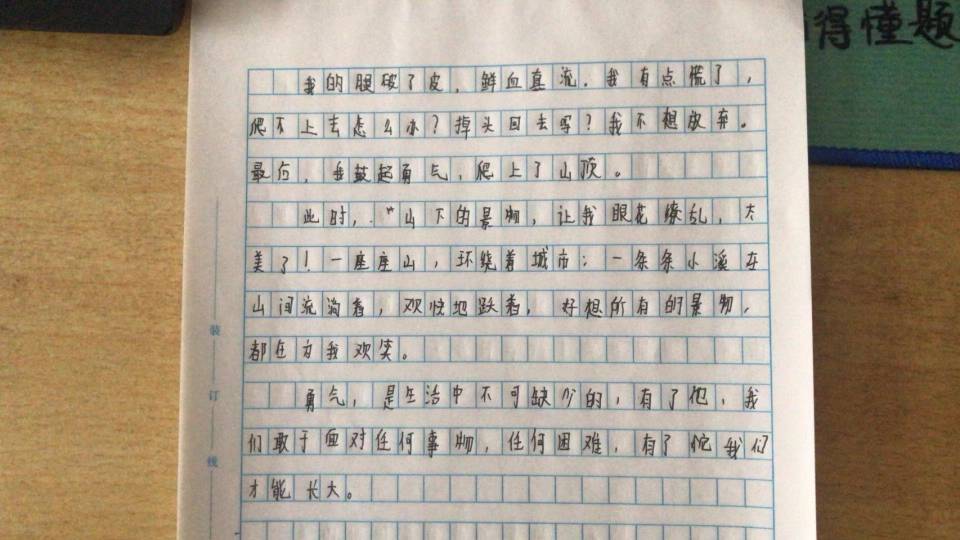 得懂题
我的腿破了皮，鲜血直流。我有点慌了，
爬不上去怎么办？掉头回去吗？我不想放弃。
最后，我鼓起勇气，爬上了山顶。
此时，“山下的景物，让我眼花缭乱，太
美了！一座座山，环绕着城市；一条条小溪在
山间流淌着，欢快地跃着，好想所有的景物，
都在为我欢笑。
勇气，是生活中不可缺少的，有了他，我
们敢于面对任何事物，任何困难，有了他我们
才能长大。
装
订
线